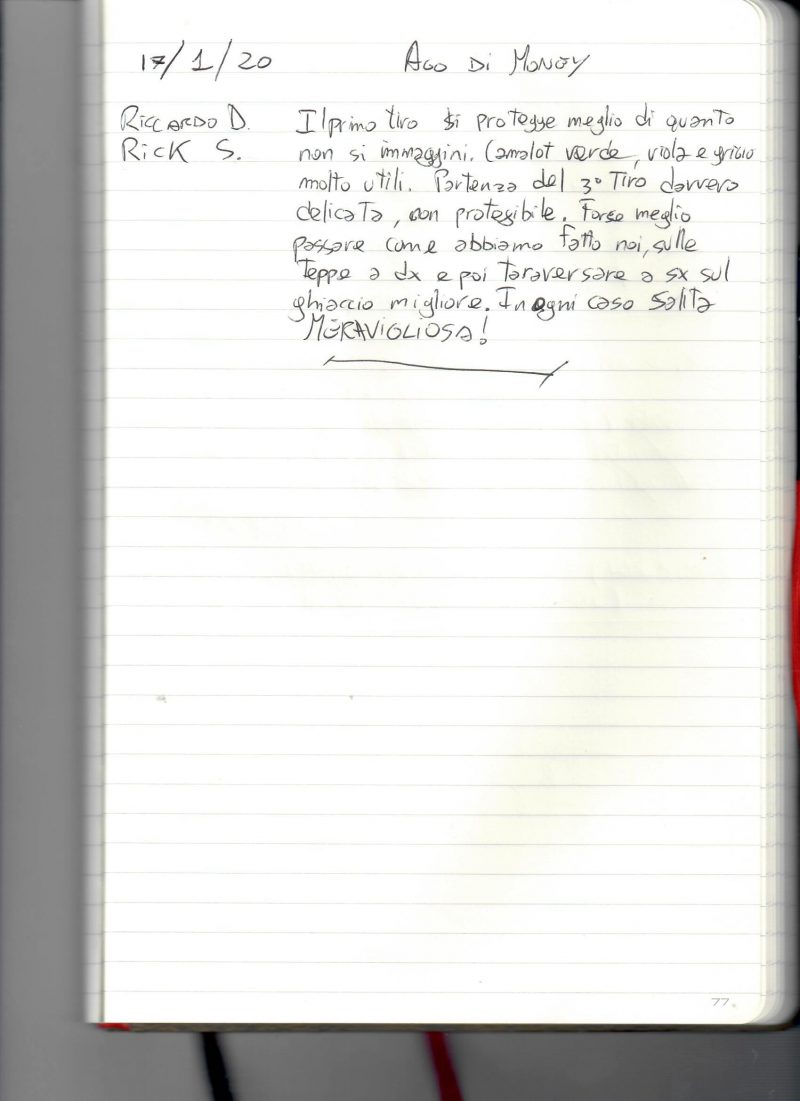 17/1/20 AGO DI MONEY
RICCARDO D. Il primo tiro si protegge meglio di quanto
RICK S. non si immaggini. Camalot verde, viola e grigio
molto utili. Partenza del 3° Tiro davvero
delicata, non protegibile. Forse meglio
passare come abbiamo fatto noi, sulle
Teppe a dx e poi Taraversare a sx sul
ghiaccio migliore. In ogni caso salita
MERAVIGLIOSA!
77